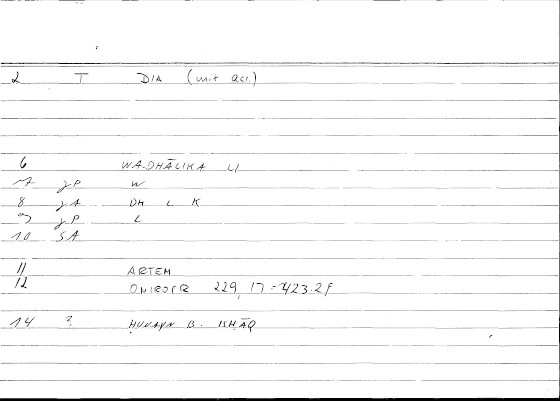 2 T DIA (mit acc.)
6 WA-DHĀLIKA LI
7 gP W
8 gA DH L K
9 gP L
10 SA
11 ARTEM
12 ONIROCR 229, 17 = 423.2f
14 ? ḤUNAYN B. ISḤĀQ